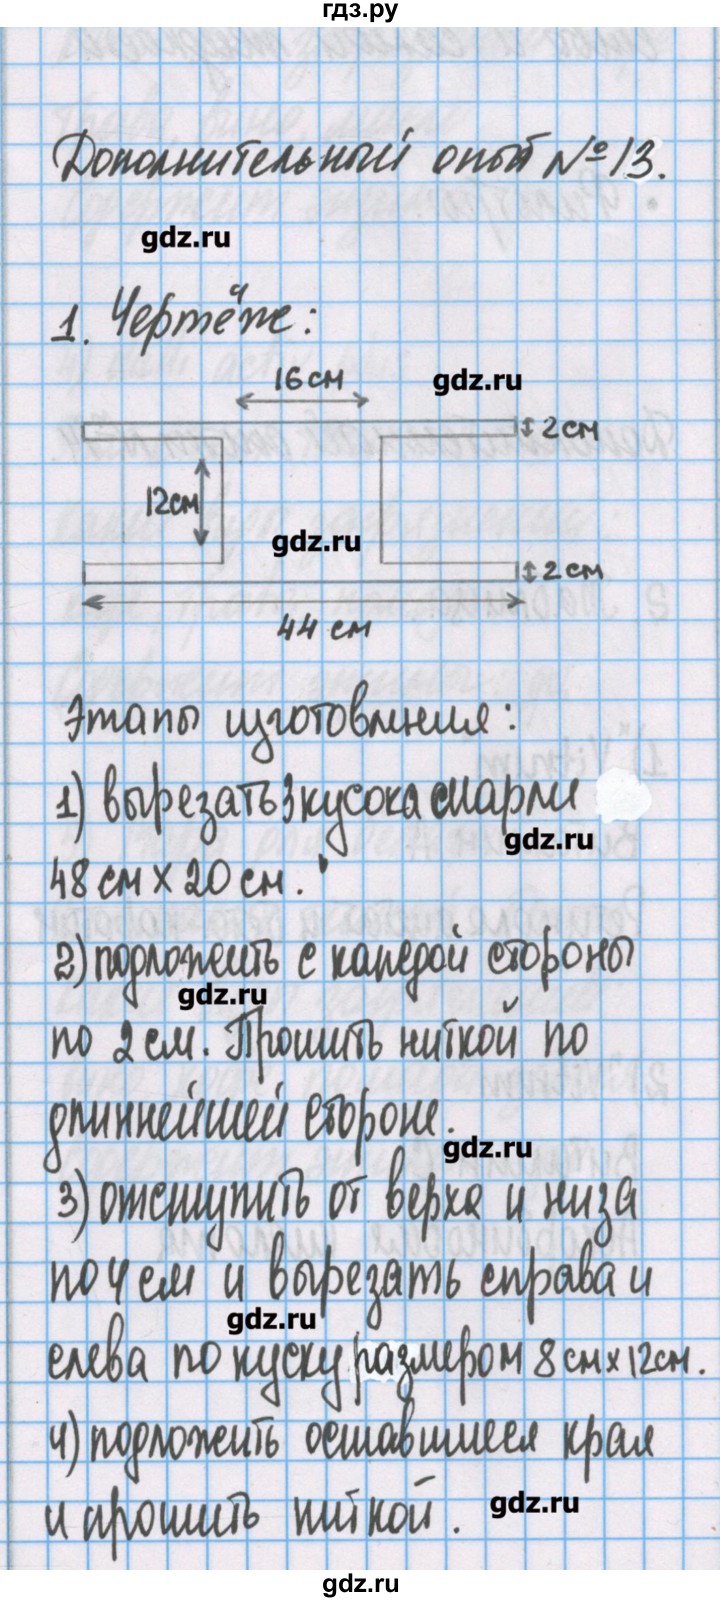 гдз.ру
Дополнительный опыт №13.
gdz.ru
1. Чертёж:
16 см
gdz.ru
2 см
12см
gdz.ru
2 см
44 см
Этапы изготовления:
1) вырезать 3 кусока марли
gdz.ru
48 см х 20 см.
2) подложить с каждой стороны
gdz.ru
по 2 см. Прошить ниткой по
длиннейшей стороне.
gdz.ru
3) отступить от верха и низа
по 4 см и вырезать справа и
gdz.ru
слева по куску размером 8 см х 12см.
4) подложить оставшиеся края
gdz.ru
и прошить ниткой.
gdz.ru